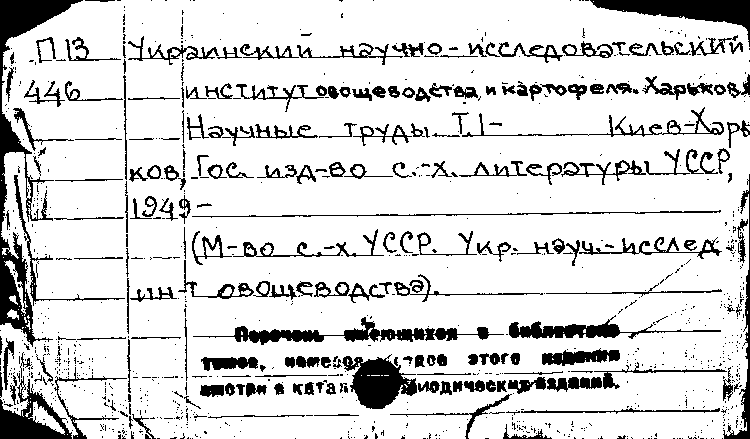 П13 Украинский научно-исследовательский
446 институт овощеводства и картофеля. Харьков.
Научные труды. Т.1- Киев-Харь
ков, Гос. изд-во с.-х. литературы УССР,
1949-
(М-во с.-х. УССР. Укр. науч.-исслед.
ин-т овощеводства).
Перечень имеющихся в библиотеке
томов, этого издания
смотри в